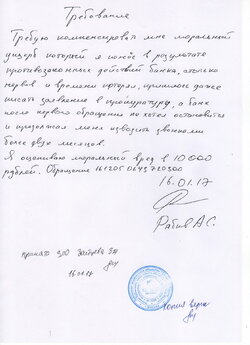 Требование
Требую компенсировать мне моральный
ущерб который я понёс в результате
противозаконных действий банка, столько
нервов и времени потерял, пришлось даже
писать заявление в прокуратуру, а банк
после первого обращения не хотел остановиться
и продолжал меня изводить звонками
более двух месяцев.
Я оцениваю моральный вред в 10 000
рублей. Обращение
16.01.17
Рабив А С.
Принято Зайцева
16.01.17
Копия верна